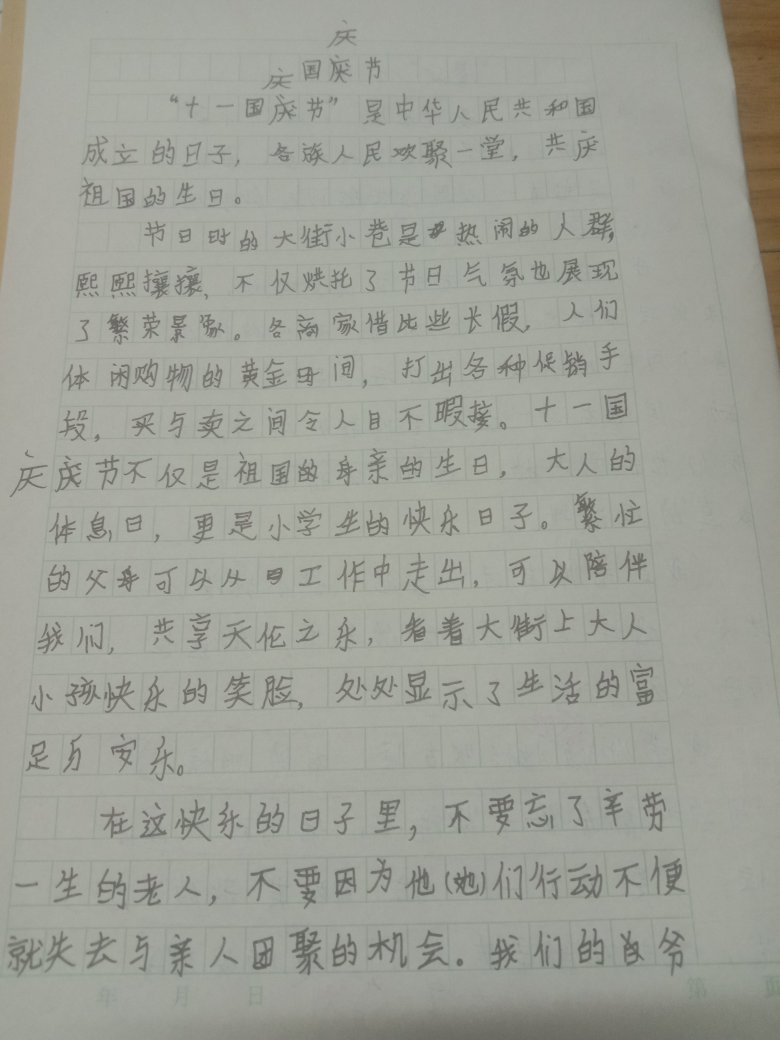 庆
庆 国庆节
“十一国庆节”是中华人民共和国
成立的日子，各族人民欢聚一堂，共庆
祖国的生日。
节日时的大街小巷是热闹的人群，
熙熙攘攘，不仅烘托了节日气氛也展现
了繁荣景象。各商家借比些长假，人们
体闲购物的黄金时间，打出各种促销手
段，买与卖之间令人目不暇接。十一国
庆 庆节不仅是祖国的母亲的生日，大人的
体息日，更是小学生的快乐日子。繁忙
的父母可以从工作中走出，可以陪伴
我们，共享天伦之乐，看着大街上大人
小孩快乐的笑脸，处处显示了生活的富
足与安乐。
在这快乐的日子里，不要忘了辛劳
一生的老人，不要因为他（她）们行动不便
就失去与亲人团聚的机会。我们的爷
年 月 日 第 页